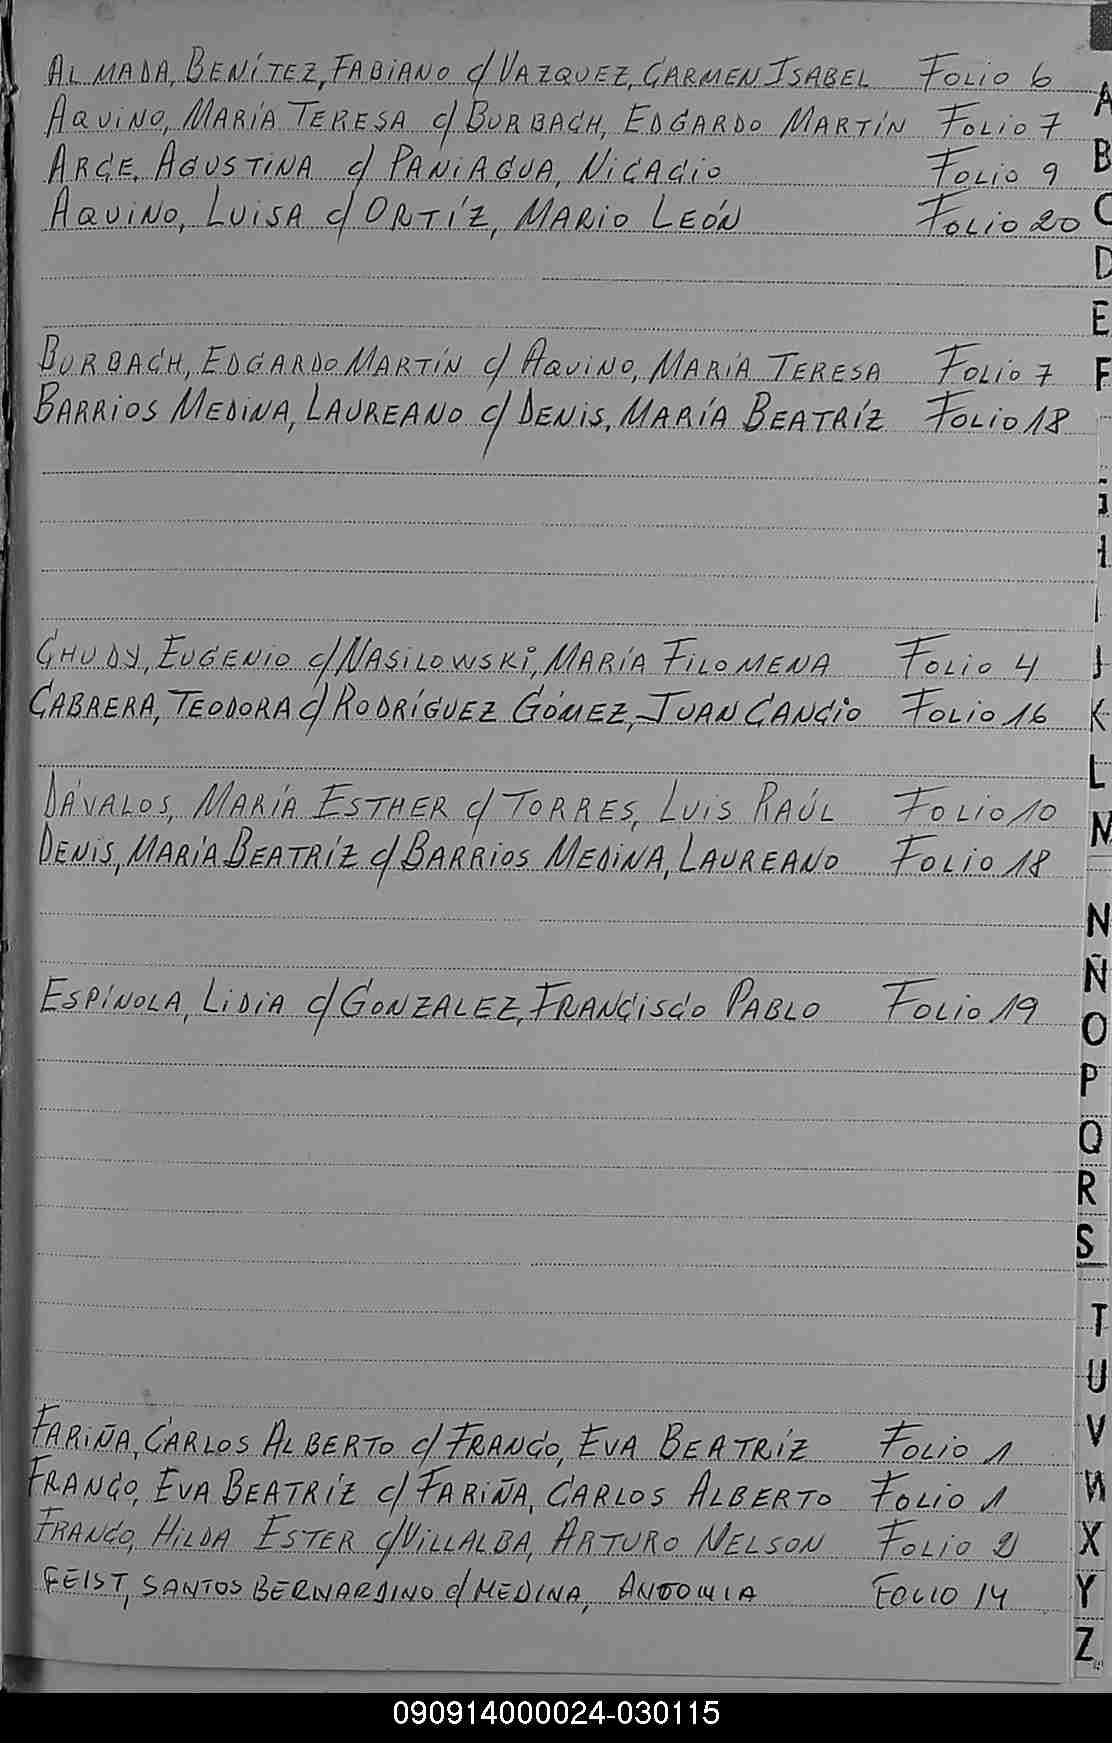 ALMADA, BENÍTEZ, FABIANO c/ VAZQUEZ, CARMEN ISABEL FOLIO 6
AQUINO, MARÍA TERESA c/ BURBACH, EDGARDO MARTÍN FOLIO 7
ARCE, AGUSTINA c/ PANIAGUA, NICACIO FOLIO 9
AQUINO, LUISA c/ ORTÍZ, MARIO LEÓN FOLIO 20
BURBACH, EDGARDO MARTÍN c/ AQUINO, MARÍA TERESA FOLIO 7
BARRIOS MEDINA, LAUREANO c/ DENIS, MARÍA BEATRÍZ FOLIO 18
CHUDY, EUGENIO c/ NASILOWSKI, MARÍA FILOMENA FOLIO 4
CABRERA, TEODORA c/ RODRÍGUEZ GÓMEZ, JUAN CANCIO FOLIO 16
DÁVALOS, MARÍA ESTHER c/ TORRES, LUIS RAÚL FOLIO 10
DENIS, MARÍA BEATRÍZ c/ BARRIOS MEDINA, LAUREANO FOLIO 18
ESPÍNOLA, LIDIA c/ GONZALEZ, FRANCISCO PABLO FOLIO 19
FARIÑA, CARLOS ALBERTO c/ FRANCO, EVA BEATRÍZ FOLIO 1
FRANCO, EVA BEATRÍZ c/ FARIÑA, CARLOS ALBERTO FOLIO 1
FRANCO, HILDA ESTER c/ VILLALBA, ARTURO NELSON FOLIO 2
FEIST, SANTOS BERNARDINO c/ MEDINA, ANTONIA FOLIO 14
A
B
C
D
E
F
G
H
I
J
K
L
N
N
Ñ
O
P
Q
R
S
T
U
V
W
X
Y
Z
090914000024-030115